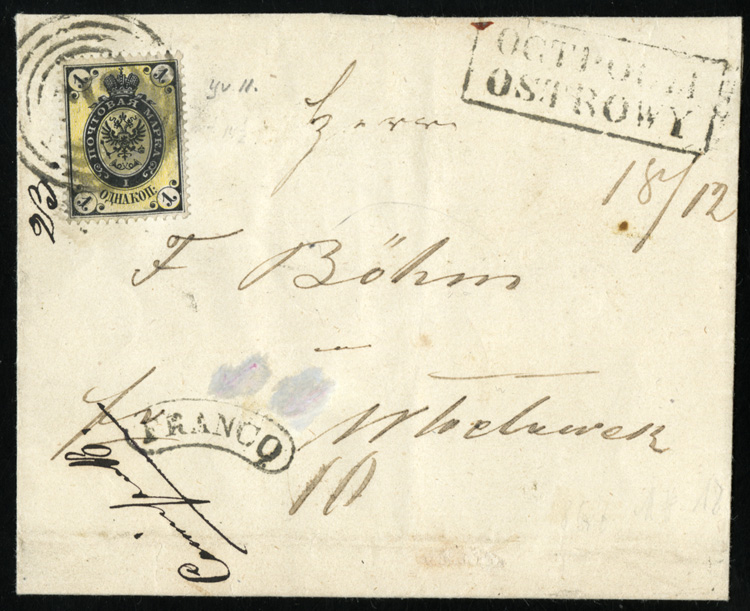 1 1
ПОЧТОВАЯ МАРКА
1
ОДНА КОП:
1 1
ОСТРОВЫ
OSTROWY
yv 11.
Herrn
18/12
23
F Böhm
fr
Włocławek
FRANCO
10